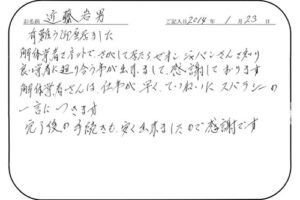 お名前 近藤岩男 ご記入日 2014年1月23日
有難う御座居ました
解体業者をネットで、さがして居たらゼオンジャパンさんを知り
良い業者に巡り合う事が出来まして、感謝して居ります
解体業者さんは仕事が早く、ていねいに、スバラシーの
一言につきます
完了後の手続きも、安く出来ましたので感謝です